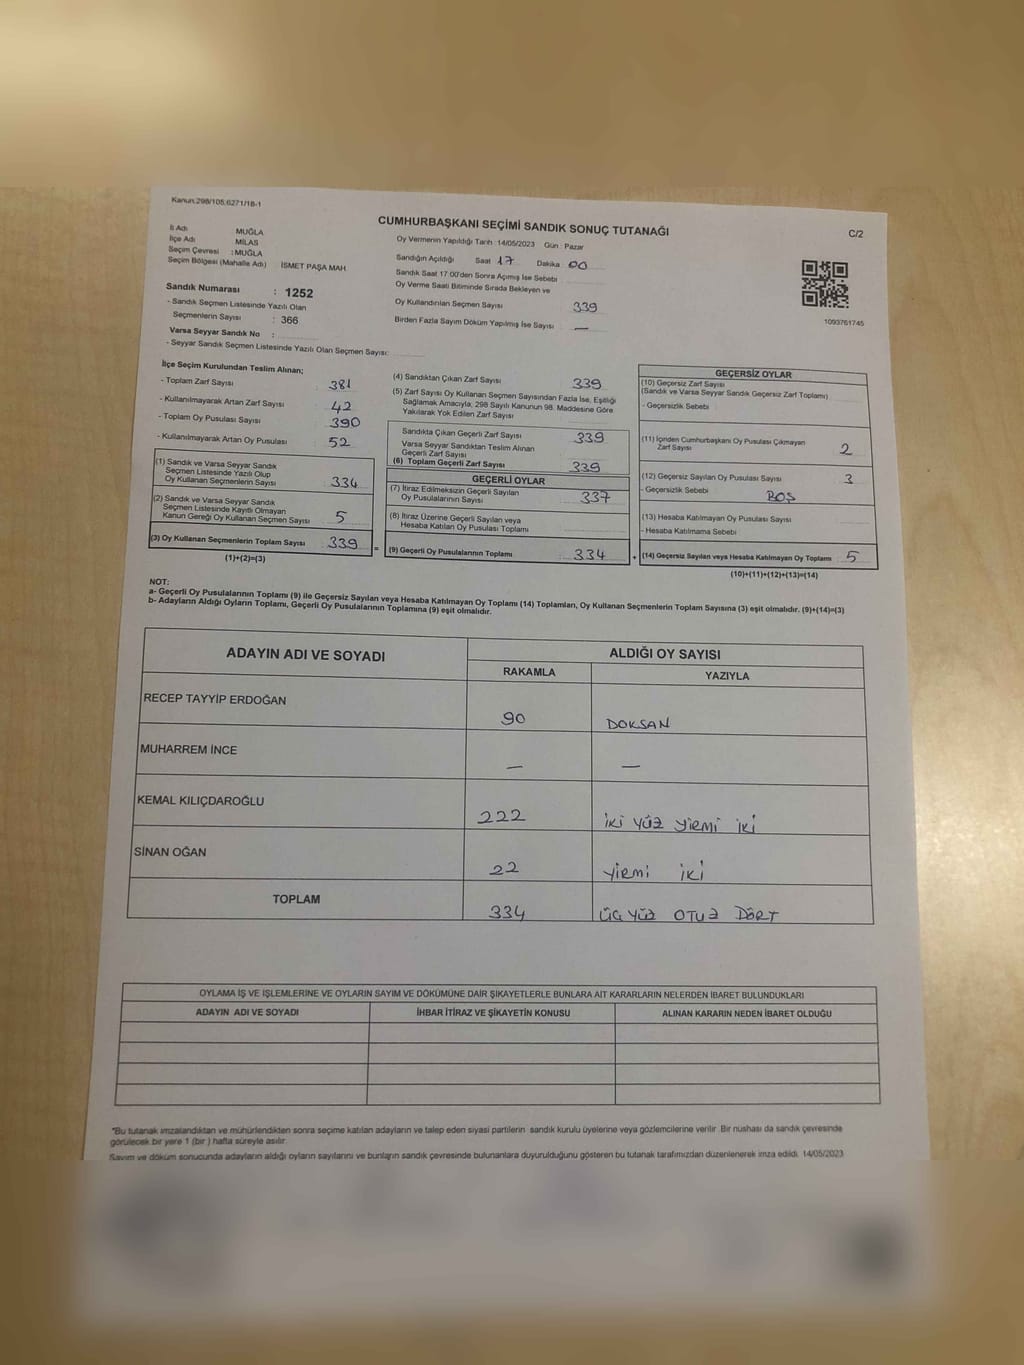 Kanun:298/105;6271/18-1
CUMHURBAŞKANI SEÇİMİ SANDIK SONUÇ TUTANAĞI
C/2
İli Adı : MUĞLA
İlçe Adı : MİLAS
Seçim Çevresi : MUĞLA
Seçim Bölgesi (Mahalle Adı) İSMET PAŞA MAH.
Sandık Numarası : 1252
- Sandık Seçmen Listesinde Yazılı Olan
Seçmenlerin Sayısı : 366
Varsa Seyyar Sandık No :
- Seyyar Sandık Seçmen Listesinde Yazılı Olan Seçmen Sayısı:
Oy Vermenin Yapıldığı Tarih :14/05/2023 Gün : Pazar
Sandığın Açıldığı Saat 17 Dakika 00
Sandık Saat 17:00'den Sonra Açılmış İse Sebebi
Oy Verme Saati Bitiminde Sırada Bekleyen ve
Oy Kullandırılan Seçmen Sayısı 339
Birden Fazla Sayım Döküm Yapılmış İse Sayısı —
1093761745
İlçe Seçim Kurulundan Teslim Alınan;
- Toplam Zarf Sayısı 381
- Kullanılmayarak Artan Zarf Sayısı 42
- Toplam Oy Pusulası Sayısı 390
- Kullanılmayarak Artan Oy Pusulası 52
(1) Sandık ve Varsa Seyyar Sandık
Seçmen Listesinde Yazılı Olup
Oy Kullanan Seçmenlerin Sayısı 334
(2) Sandık ve Varsa Seyyar Sandık
Seçmen Listesinde Kayıtlı Olmayan
Kanun Gereği Oy Kullanan Seçmen Sayısı 5
(3) Oy Kullanan Seçmenlerin Toplam Sayısı 339
(1)+(2)=(3)
(4) Sandıktan Çıkan Zarf Sayısı 339
(5) Zarf Sayısı Oy Kullanan Seçmen Sayısından Fazla İse, Eşitliği
Sağlamak Amacıyla, 298 Sayılı Kanunun 98. Maddesine Göre
Yakılarak Yok Edilen Zarf Sayısı
Sandıkta Çıkan Geçerli Zarf Sayısı 339
Varsa Seyyar Sandıktan Teslim Alınan
Geçerli Zarf Sayısı
(6) Toplam Geçerli Zarf Sayısı 339
GEÇERLİ OYLAR
(7) İtiraz Edilmeksizin Geçerli Sayılan
Oy Pusulalarının Sayısı 337
(8) İtiraz Üzerine Geçerli Sayılan veya
Hesaba Katılan Oy Pusulası Toplamı
=
(9) Geçerli Oy Pusulalarının Toplamı 334
GEÇERSİZ OYLAR
(10) Geçersiz Zarf Sayısı
(Sandık ve Varsa Seyyar Sandık Geçersiz Zarf Toplamı)
- Geçersizlik Sebebi
(11) İçinden Cumhurbaşkanı Oy Pusulası Çıkmayan
Zarf Sayısı 2
(12) Geçersiz Sayılan Oy Pusulası Sayısı 3
- Geçersizlik Sebebi BOŞ
(13) Hesaba Katılmayan Oy Pusulası Sayısı
- Hesaba Katılmama Sebebi
+ (14) Geçersiz Sayılan veya Hesaba Katılmayan Oy Toplamı 5
(10)+(11)+(12)+(13)=(14)
NOT:
a- Geçerli Oy Pusulalarının Toplamı (9) ile Geçersiz Sayılan veya Hesaba Katılmayan Oy Toplamı (14) Toplamları, Oy Kullanan Seçmenlerin Toplam Sayısına (3) eşit olmalıdır. (9)+(14)=(3)
b- Adayların Aldığı Oyların Toplamı, Geçerli Oy Pusulalarının Toplamına (9) eşit olmalıdır.
ADAYIN ADI VE SOYADI ALDIĞI OY SAYISI
RAKAMLA YAZIYLA
RECEP TAYYİP ERDOĞAN 90 DOKSAN
MUHARREM İNCE — —
KEMAL KILIÇDAROĞLU 222 İKİ YÜZ YİRMİ İKİ
SİNAN OĞAN 22 YİRMİ İKİ
TOPLAM 334 ÜÇ YÜZ OTUZ DÖRT
OYLAMA İŞ VE İŞLEMLERİNE VE OYLARIN SAYIM VE DÖKÜMÜNE DAİR ŞİKAYETLERLE BUNLARA AİT KARARLARIN NELERDEN İBARET BULUNDUKLARI
ADAYIN ADI VE SOYADI İHBAR İTİRAZ VE ŞİKAYETİN KONUSU ALINAN KARARIN NEDEN İBARET OLDUĞU
*Bu tutanak imzalandıktan ve mühürlendikten sonra seçime katılan adayların ve talep eden siyasi partilerin sandık kurulu üyelerine veya gözlemcilerine verilir. Bir nüshası da sandık çevresinde
görülecek bir yere 1 (bir ) hafta süreyle asılır.
Sayım ve döküm sonucunda adayların aldığı oyların sayılarını ve bunların sandık çevresinde bulunanlara duyurulduğunu gösteren bu tutanak tarafımızdan düzenlenerek imza edildi. 14/05/2023